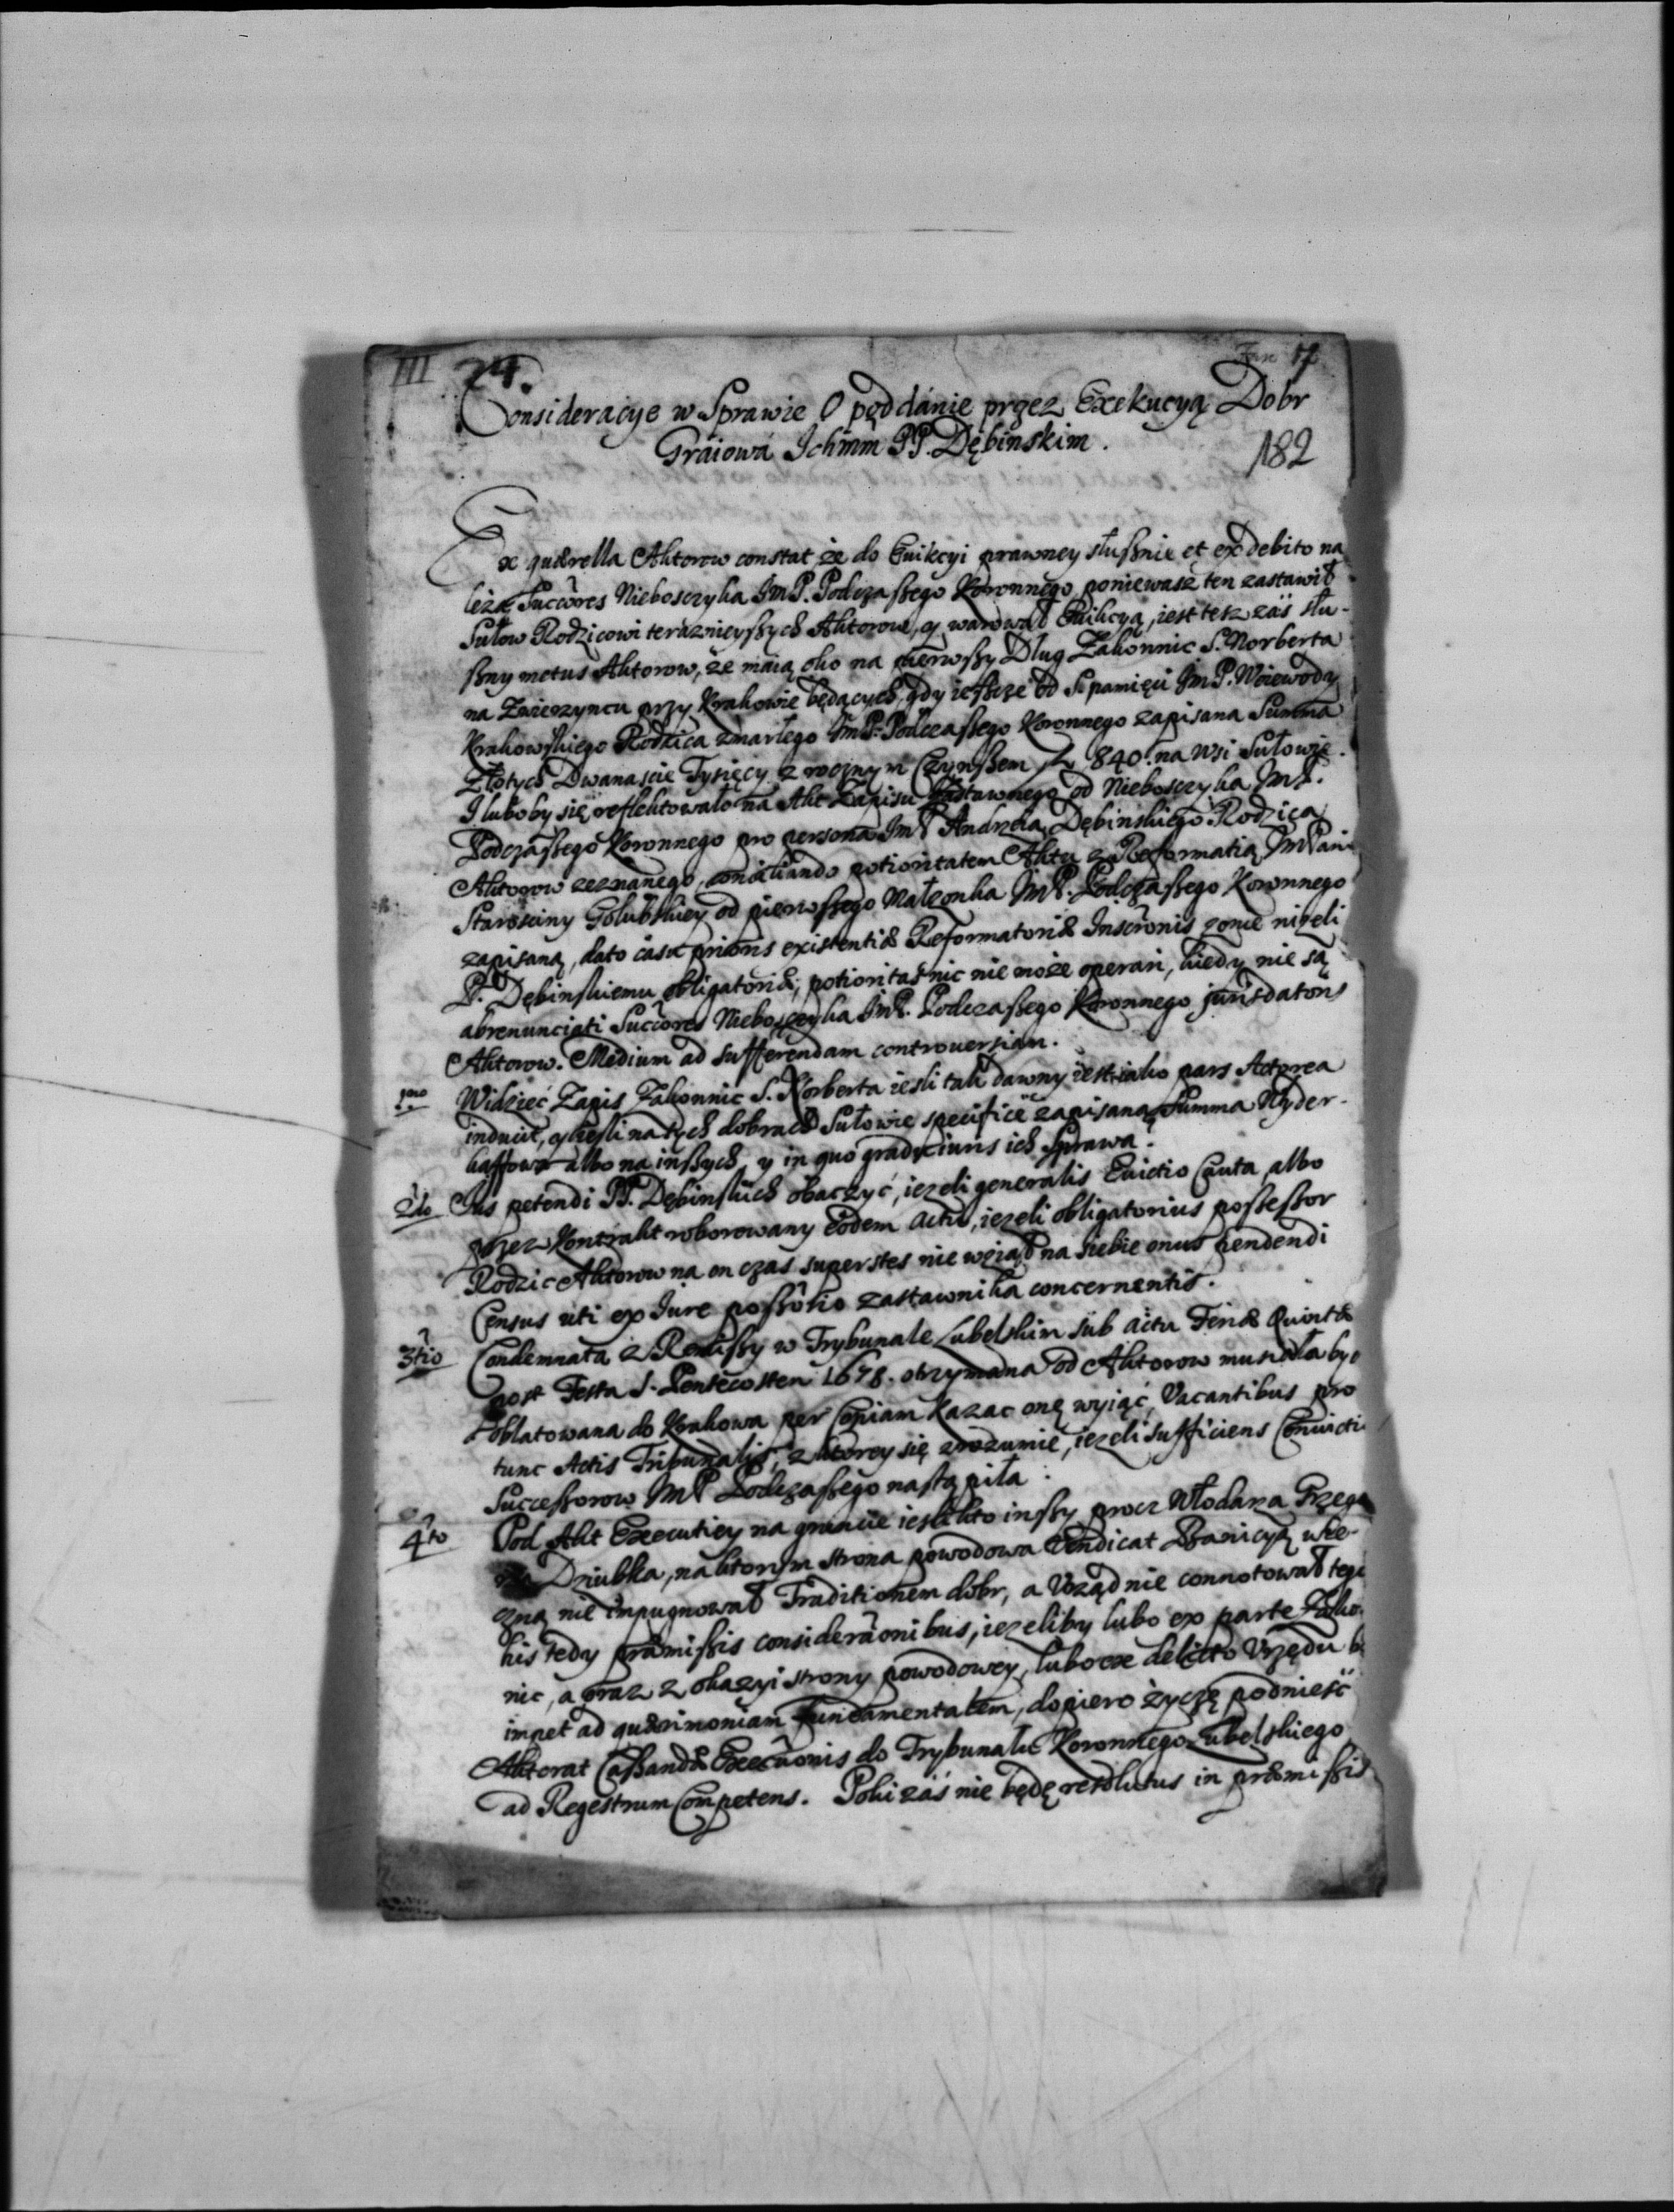 III 24. 17
Consideracye w Sprawie O poddánie przez Exekucyą Dobr
Gráiowá Ichmm PP. Dębinskim.
182
Ex quærella Aktorow constat że do Ewikcyi prawney słusznie et ex debito na
leżą Succ̃ores Nieboszczyka Im P. Podczaszego Koronnego poniewasz ten zastawił
Sułow Rodzicowi teraznieyszych Aktorow, y warował Ewikcyą, iest tesz zás słu-
szny motus Aktorow, że maią oko na pierwszy Dług Zakonnic S. Norberta
na Zwierzyncu przy Krakowie będących, gdy ieszcze od S pamięci Im P. Woiewody
Krakowskiego Rodzica zmarłego Im P. Podczaszego Koronnego zapisana Summa
Złotych Dwanascie Tysięcy z rocznym Czynszem 840. na Wsi Sułowie.
I luboby się reflektowało na Akt Zapisu Zastawnego od Nieboszczyka Im P.
Podczaszego Koronnego pro persona Im P Andrzeia Dębinskiego Rodzica
Aktorow zeznanego, conciliando potioritatem Aktu za Reformatią Im Pani
Starosciny Golubskiey od pierwszego Małzonka Im P. Podczaszego Koronnego
zapisaną, dato casu prioris existentiæ Reformatoriæ Inscr̃onis nizeli
P. Dębinskiemu obligatoriæ, potioritas nic nie może operari, kiedy nie są
abrenunciati Succ̃ores Nieboszczyka Im P. Podczaszego Koronnego
Aktorow. Medium ad sufferendam controversiam.
1mo Widzieć Zapis Zakonnic S. Norberta iesli tak dawny iest iako pars Actorea
inducit, y iesli na tych dobrach Sułowie specifice zapisaną Summa Wyder-
kaffowa albo na inszych y in quo gradu iuris ich Sprawa.
2do Ius petendi PP. Dębinskich obaczyć, iezeli generalis Evictio Cauta, albo
przez Kontrakt roborowany eodem actu, iezeli obligatorius possessor
Rodzic Aktorow na on czas superstes nie wziął na siebie onus pendendi
Census uti ex Iure possõrio zastawnika concernentis.
3tio Condemnata z Remissy w Trybunale Lubelskim sub actu Feriæ Quintæ
post Festa S. Pentecosten 1678. otrzymana od Aktorow musiała by
oblatowana do Krakowa per Copiam Kazac onę wyiąć, Vacantibus pro
tunc Actis Tribunalis, z ktorey się zrozumie, iezeli sufficiens Convicti
Successorow Im P Podczaszego nastąpiła.
4to Pod Akt Executiey na gruncie iesli kto inszy procz Włodarza
Dziubka, na ktorym strona powodowa Vendicat Banicyą wie-
czną nie impugnował Traditionem dobr, a Urząd nie connotował tego
his tedy præmissis considerãonibus, iezeliby lubo ex parte Zako-
nic, a oraz z okazyi strony powodowey, lubo ex delicto Urzędu
impet ad quærimoniam fundamentalem, dopiero życzę podniesć
Aktorat Cassandæ Execũonis do Trybunału Koronnego Lubelskiego
ad Regestrum Competens. Poki zás nie będę resolutus in præmissis